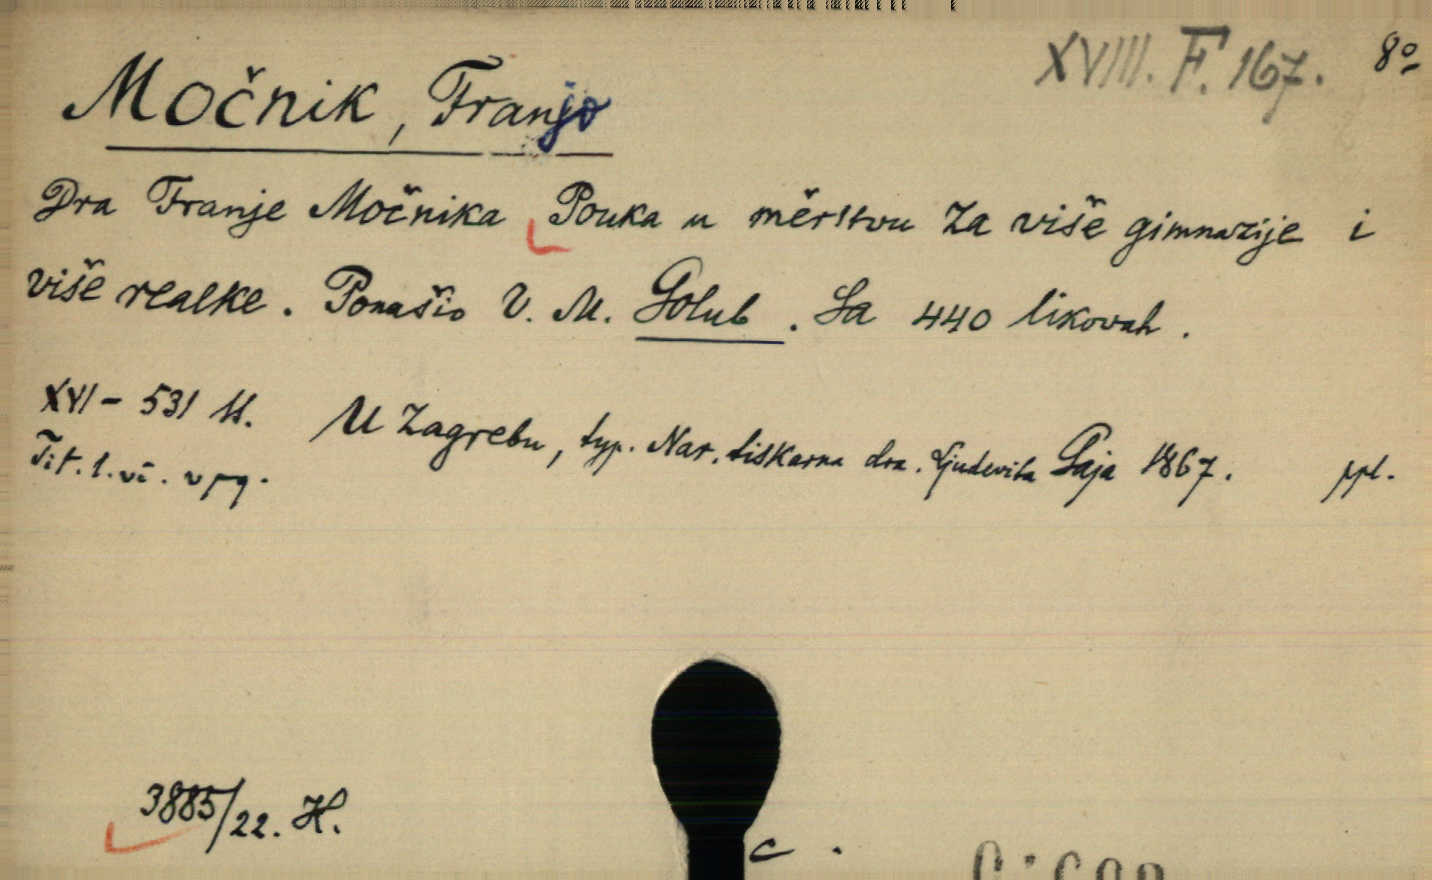 XVIII. F. 167. 8º
Močnik, Franjo
Dra Franje Močnika Pouka u měrstvu za više gimnazije i
više realke. Ponašio V. M. Golub. Sa 440 likovah.
XVI - 531 st. U Zagrebu, typ. Nar. tiskarna dra. Ljudevita Gaja 1867. ppl.
Tit. l.
3885/22. H.
c.